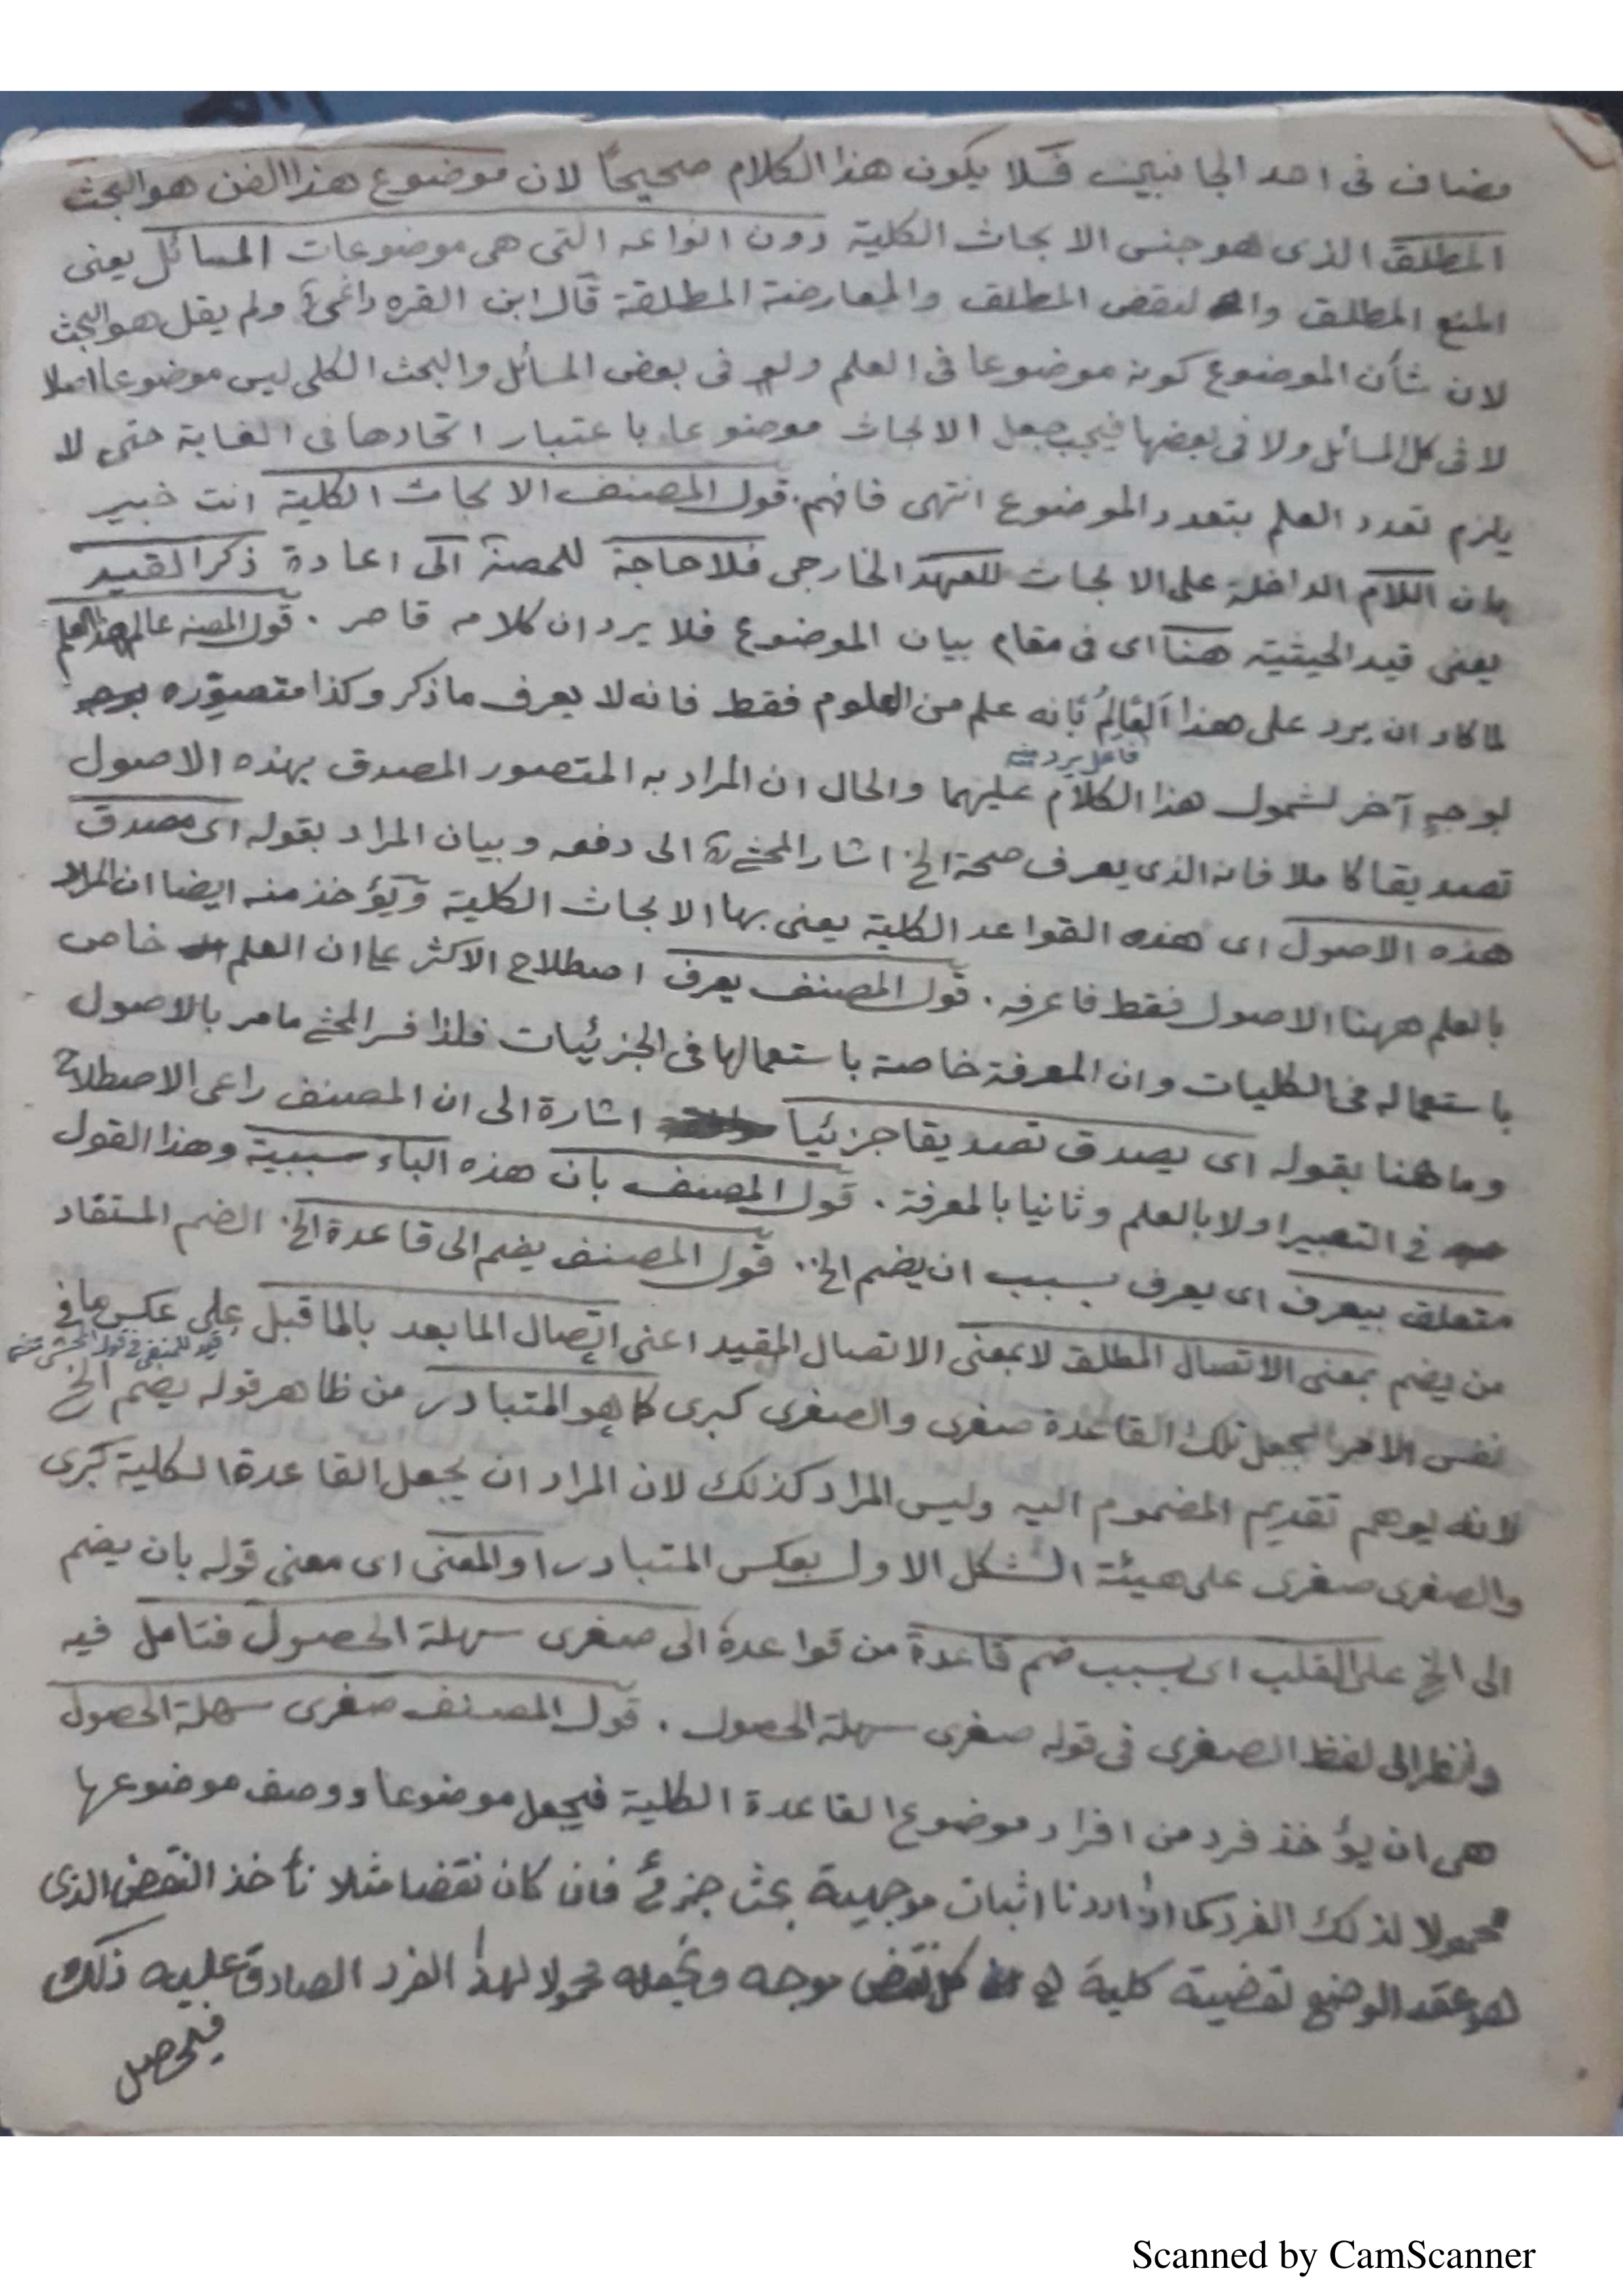 مضاف فى احد الجانبين فلا يكون هذا الكلام صحيحا لان موضوع هذا الفن هو البحث
المطلق الذى هو جنس الابحاث الكلية دون انواعه التى هى موضوعات المسائل يعنى
المنع المطلق والنقض المطلق والمعارضة المطلقة قال ابن القره داغى ولم يقل هو البحث
لان شأن الموضوع كونه موضوعا فى العلم ولو فى بعض المسائل والبحث الكلى ليس موضوعا اصلا
لا فى كل المسائل ولا فى بعضها فيجب جعل الابحاث موضوعا باعتبار اتحادها فى الغاية حتى لا
يلزم تعدد العلم بتعدد الموضوع انتهى فافهم. قول المصنف الابحاث الكلية انت خبير
بان اللام الداخلة على الابحاث للعهد الخارجى فلا حاجة للمصنـ الى اعادة ذكر القيد
يعنى قيد الحيثية هنا اى فى مقام بيان الموضوع فلا يرد ان كلامه قاصر . قول المصنـ عالم هذا العلم
لما كاد ان يرد على هذا العالِمُ بانه علم من العلوم فقط فانه لا يعرف ما ذكر وكذا متصوّره
فاعل يرد منه
بوجهٍ آخر لشمول هذا الكلام عليهما والحال ان المراد به المتصور المصدق بهذه الاصول
تصديقا كاملا فانه الذى يعرف صحة الخ اشار المحشى الى دفعه وبيان المراد بقوله اى مصدق
هذه الاصول اى هذه القواعد الكلية يعنى بها الابحاث الكلية ويؤخذ منه ايضا ان المراد
بالعلم ههنا الاصول فقط فاعرفه . قول المصنف يعرف اصطلاح الاكثر على ان العلم خاص
باستعماله فى الكليات وان المعرفة خاصة باستعمالها فى الجزئيات فلذا فسر المحشى ما مر بالاصول
وما هنا بقوله اى يصدق تصديقا جزئيا اشارة الى ان المصنف راعى الاصطلاح
فى التعبير اولا بالعلم وثانيا بالمعرفة . قول المصنف بان هذه الباء سببية وهذا القول
متعلق بيعرف اى يعرف بسبب ان يضم الخ.. قول المصنف يضم الى قاعدة الخ. الضم المستفاد
من يضم بمعنى الاتصال المطلق لا بمعنى الاتصال المقيد اعنى اتصال المابعد بالماقبل على عكس ما فى
نفس الامر بجعل تلك القاعدة صغرى والصغرى كبرى كما هو المتبادر من ظاهر قوله يضم الخ
لانه يوهم تقديم المضموم اليه وليس المراد كذلك لان المراد ان يجعل القاعدة الكلية كبرى
والصغرى صغرى على هيئة الشكل الاول بعكس المتبادر او المعنى اى معنى قوله بان يضم
الى الخ على القلب اى بسبب ضم قاعدة من قواعده الى صغرى سهلة الحصول فتامل فيه
وانظر الى لفظ الصغرى فى قوله صغرى سهلة الحصول . قول المصنف صغرى سهلة الحصول
هى ان يؤخذ فرد من افراد موضوع القاعدة الكلية فيجعل موضوعا ووصف موضوعها
محمولا لذلك الفرد كما اذا اردنا اثبات موجهية بحث جزئى فان كان نقضا مثلا نأخذ النقض الذى
هو عقد الوضع لقضية كلية كل نقض موجه ونجعله محمولا لهذا الفرد الصادق عليه ذلك
فيحصل